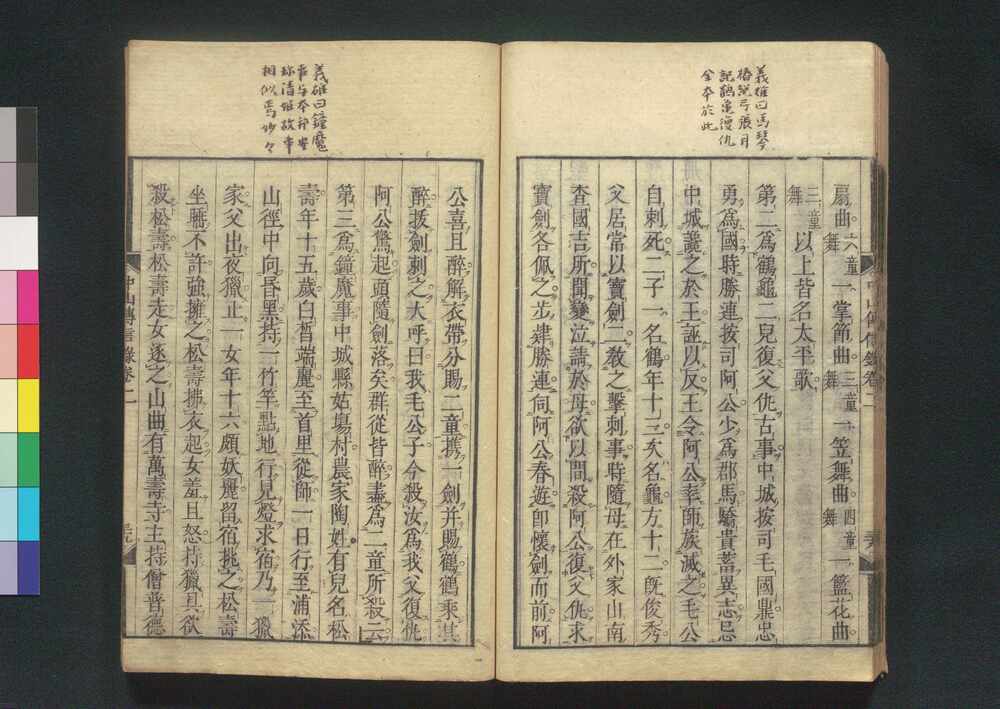 義雄曰馬琴
椿説弓張月
記鶴亀復仇
全本於此
扇曲六童舞一掌節曲三童舞一笠舞曲四童舞一籃花曲
三童舞以上皆名太平歌
第二為鶴龜二兒復父仇古事中城按司毛國鼎忠
勇為國時勝連按司阿公少為郡馬驕貴蓄異志忌
中城讒之於王誣以反王令阿公率師族滅之毛公
自刺死二子一名鶴年十三次名龜方十二既俊秀
父居常以寶劍二教之擊刺事時隨母在外家山南
查國吉所聞變泣請於母欲以間殺阿公復父仇求
寶劍各佩之步逮勝連伺阿公春遊即懷劍而前阿
中山傳信錄卷二
義雄曰鐘魔
事与本邦安
珍清姫故事
相似焉妙々
公喜且醉解衣帶分賜二童携一劍并賜鶴鶴乘其
醉拔劍刺之大呼曰我毛公子今殺汝為我父復仇
阿公驚起頭隨劍落矣群從皆醉盡為二童所殺云
第三為鐘魔事中城縣姑場村農家陶姓有兒名松
壽年十五歲白皙端麗至首里從師一日行至浦添
山徑中向昏黑持一竹竿點地行見燈求宿乃一獵
家父出夜獵止一女年十六頗妖麗留宿挑之松壽
坐曆不許強擁之松壽拂衣起女羞且怒持獵具欲
殺松壽松壽走女逐之山曲有萬壽寺主持僧普德
中山傳信錄卷二